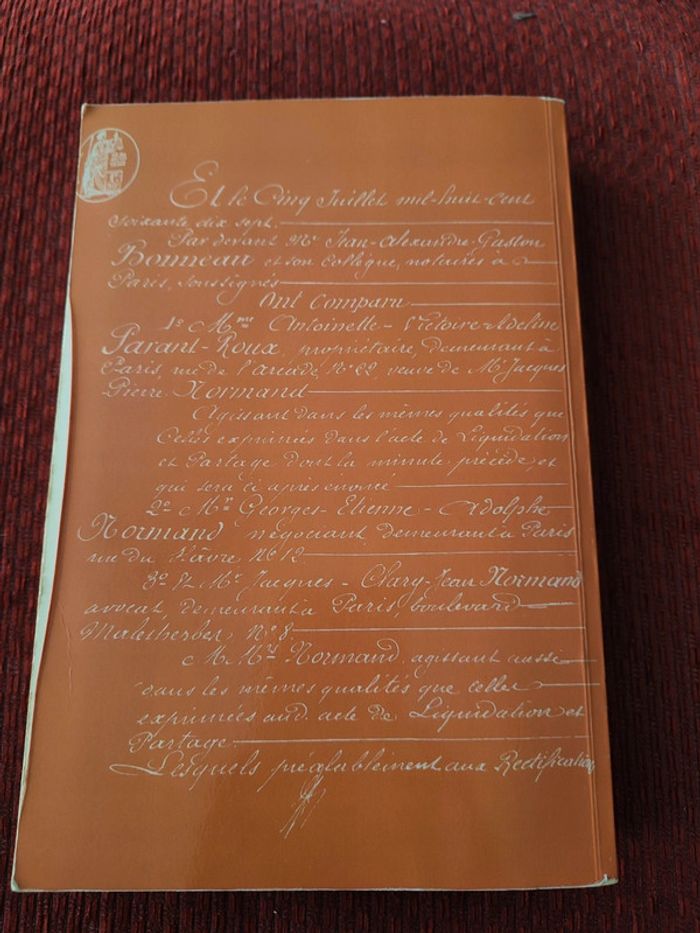 Et le Cinq Juillet mil-huit-cent
soixante dix sept.
Par devant Me Jean-Alexandre-Gaston
Bonneau et son Collègue, notaires à
Paris, soussignés
Ont comparu
1o Mme Antoinette-Victoire-Adeline
Parant-Roux, propriétaire, demeurant à
Paris, rue de l'arcade, No 22, veuve de Mr Jacques
Pierre Normand
Agissant dans les mêmes qualités que
Celles exprimées dans l'acte de Liquidation
et Partage dont la minute précède, et
qui sera ci après énoncé
2o Mr Georges-Etienne-Adolphe
Normand négociant demeurant à Paris
rue du Hâvre No 12
3o Et Mr Jacques-Clary-Jean Normand
avocat, demeurant à Paris, boulevard
Malesherbes, No 8.
M.Mrs Normand, agissant aussi
dans les mêmes qualités que celles
exprimées aud. acte de Liquidation et
Partage
Lesquels préalablement aux Rectification